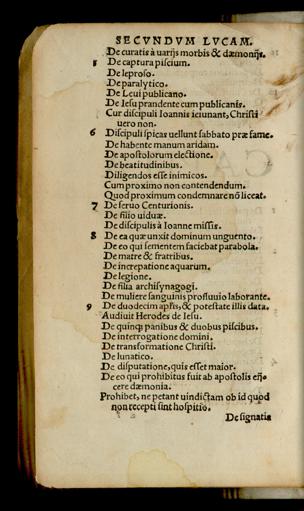 SECVNDVM LVCAM.
De curatis à uarijs morbis & dæmonijs.
5 De captura piscium.
De leproso.
De paralytico.
De Leui publicano.
De Iesu prandente cum publicanis.
Cur discipuli Ioannis ieiunant, Christi
uero non.
6 Discipuli spicas uellunt sabbato præ fame.
De habente manum aridam.
De apostolorum electione.
De beatitudinibus.
Diligendos esse inimicos.
Cum proximo non contendendum.
Quod proximum condemnare nõ liceat.
7 De seruo Centurionis.
De filio uiduæ.
De discipulis à Ioanne missis.
8 De ea quæ unxit dominum unguento.
De eo qui sementem faciebat parabola.
De matre & fratribus.
De increpatione aquarum.
De legione.
De filia archisynagogi.
De muliere sanguinis profluuio laborante.
9 De duodecim aplis, & potestate illis data.
Audiuit Herodes de Iesu.
De quinq; panibus & duobus piscibus.
De interrogatione domini.
De transformatione Christi.
De lunatico.
De disputatione, quis esset maior.
De eo qui prohibitus fuit ab apostolis eij-
cere dæmonia.
Prohibet, ne petant uindictam ob id quod
non recepti sint hospitio.
De signatis